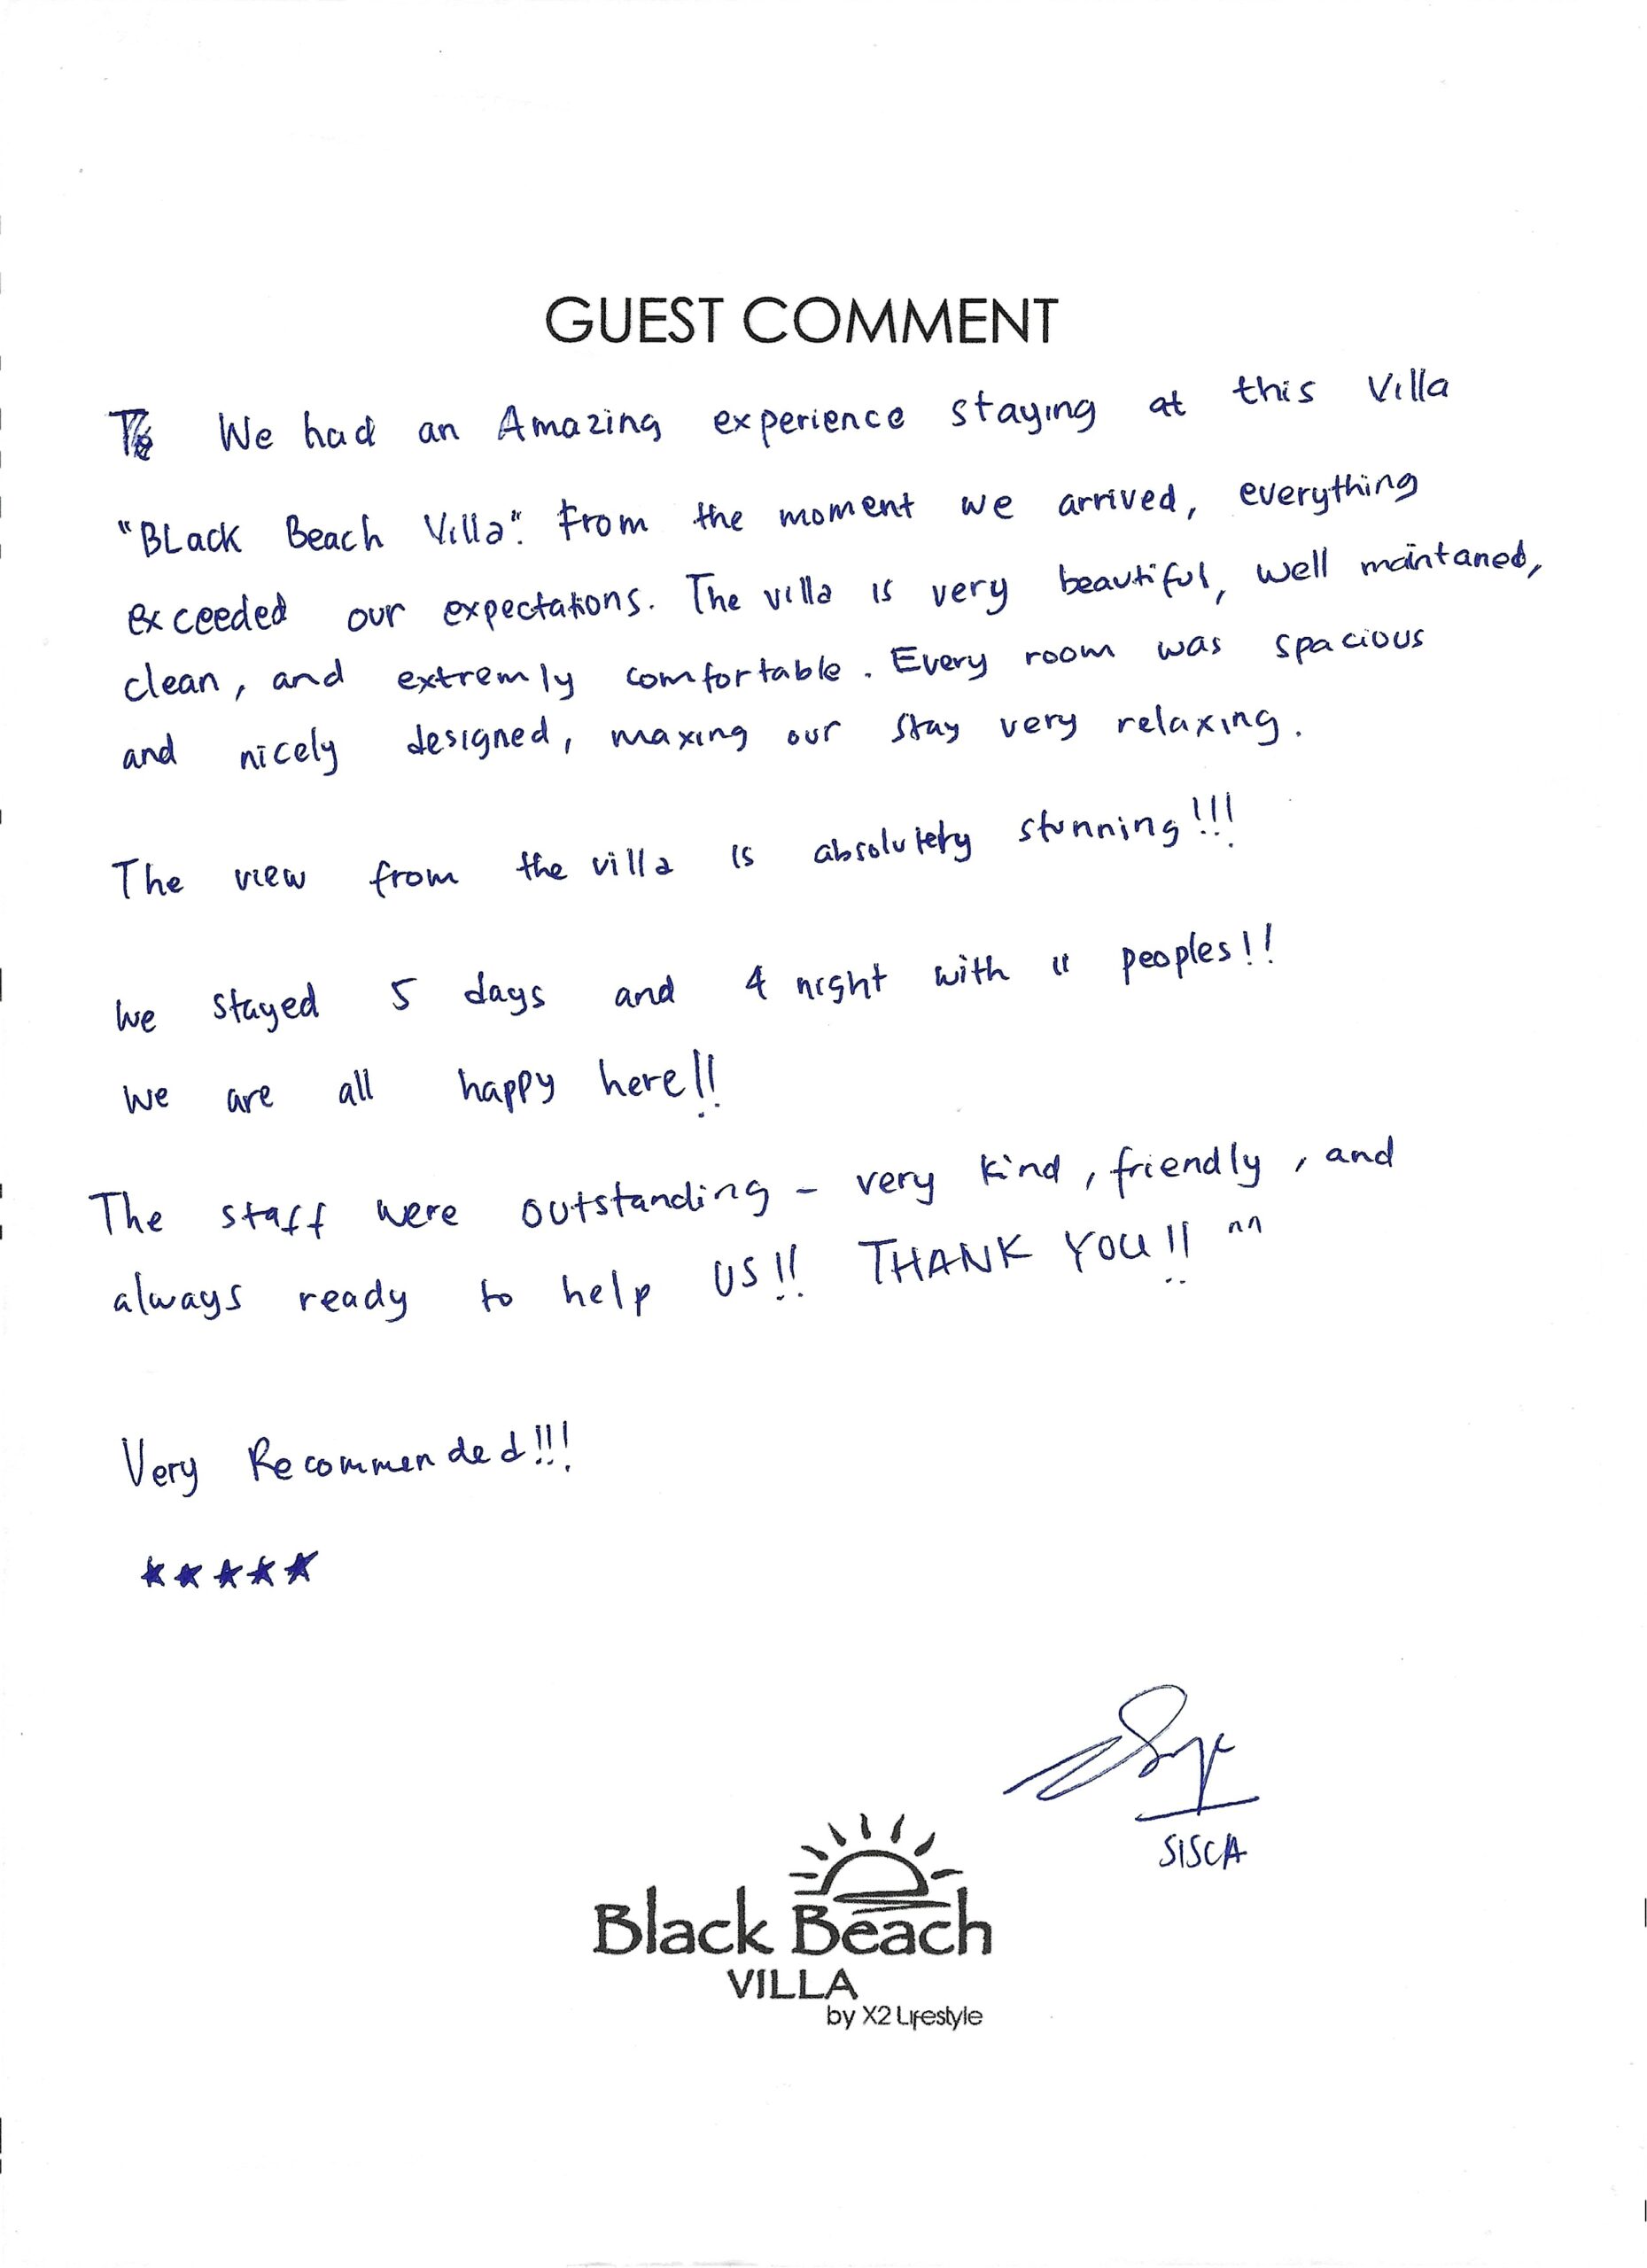 GUEST COMMENT
We had an Amazing experience staying at this Villa
"BLack Beach Villa". From the moment we arrived, everything
exceeded our expectations. The villa is very beautiful, well maintaned,
clean, and extremly comfortable. Every room was spacious
and nicely designed, making our stay very relaxing.
The view from the villa is absolutely stunning!!!
We stayed 5 days and 4 night with 11 peoples!!
We are all happy here!!
The staff were outstanding - very kind, friendly, and
always ready to help US!! THANK YOU!! ^^
Very Recommended!!!
★★★★★
SISCA
Black Beach
VILLA
by X2 Lifestyle